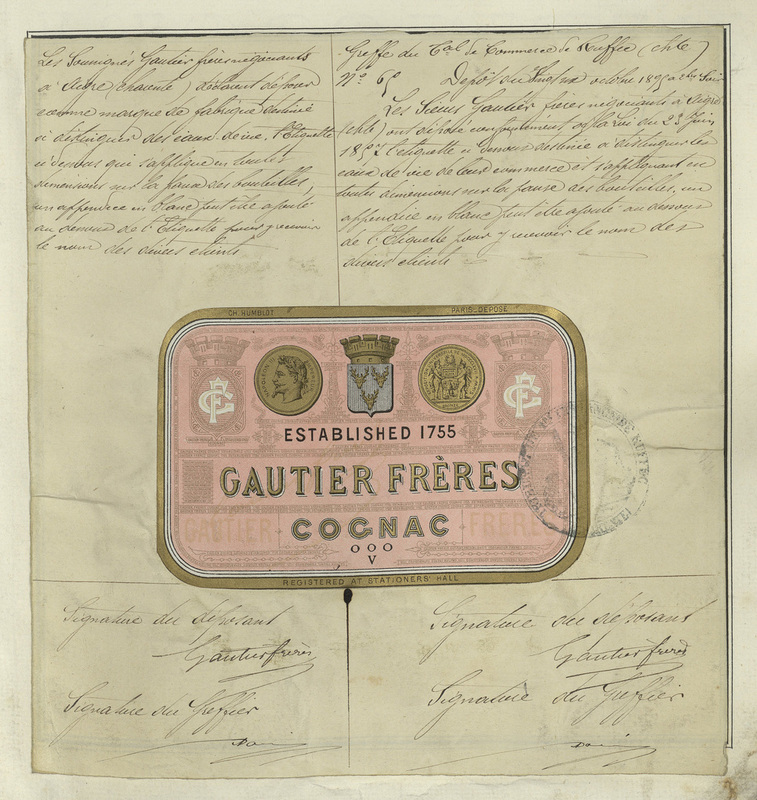 Les Soussignés Gautier frères négociants
à Aigre (charente) déclarent déposer
comme marque de fabrique destinée
à distinguer des eaux de vie, l'Etiquette
ci dessous qui s'applique en toutes
dimensions sur la panse des bouteilles,
un appendice en blanc peut être ajouté
au dessous de l'Etiquette pour y recevoir
le nom des divers clients
Greffe du Cal de Commerce de Ruffec (chte)
No 65 Dépôt du octobre 2 hres Soir
Les Sieurs Gautier frères négociants à Aigre
(chte) ont déposé conformément à la loi du 23 Juin
1857 l'etiquette ci dessous destinée à distinguer les
eaux de vie de leur commerce et s'appliquant en
toutes dimensions sur la panse des bouteilles, un
appendice en blanc peut être ajouté au dessous
de l'Etiquette pour y recevoir le nom des
divers clients
CH. HUMBLOT PARIS_DÉPOSÉ
GF GF
ESTABLISHED 1755
GAUTIER FRÈRES
GAUTIER COGNAC FRÈRES
OOO
V
REGISTERED AT STATIONERS' HALL
Signature du déposant
Gautier frères
Signature du Greffier
Signature du déposant
Gautier frères
Signature du Greffier